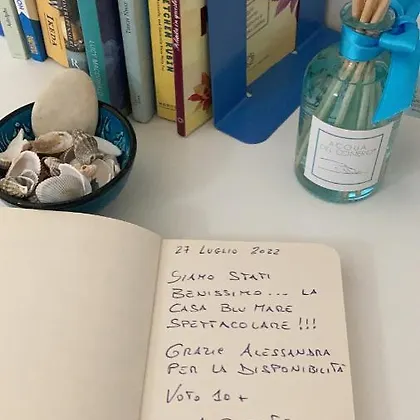 IKEDA
GRETCHEN RUBIN
ACQUA
27 LUGLIO 2022
SIAMO STATI
BENISSIMO... LA
CASA BLU MARE
SPETTACOLARE !!!
GRAZIE ALESSANDRA
PER LA DISPONIBILITÀ
VOTO 10+